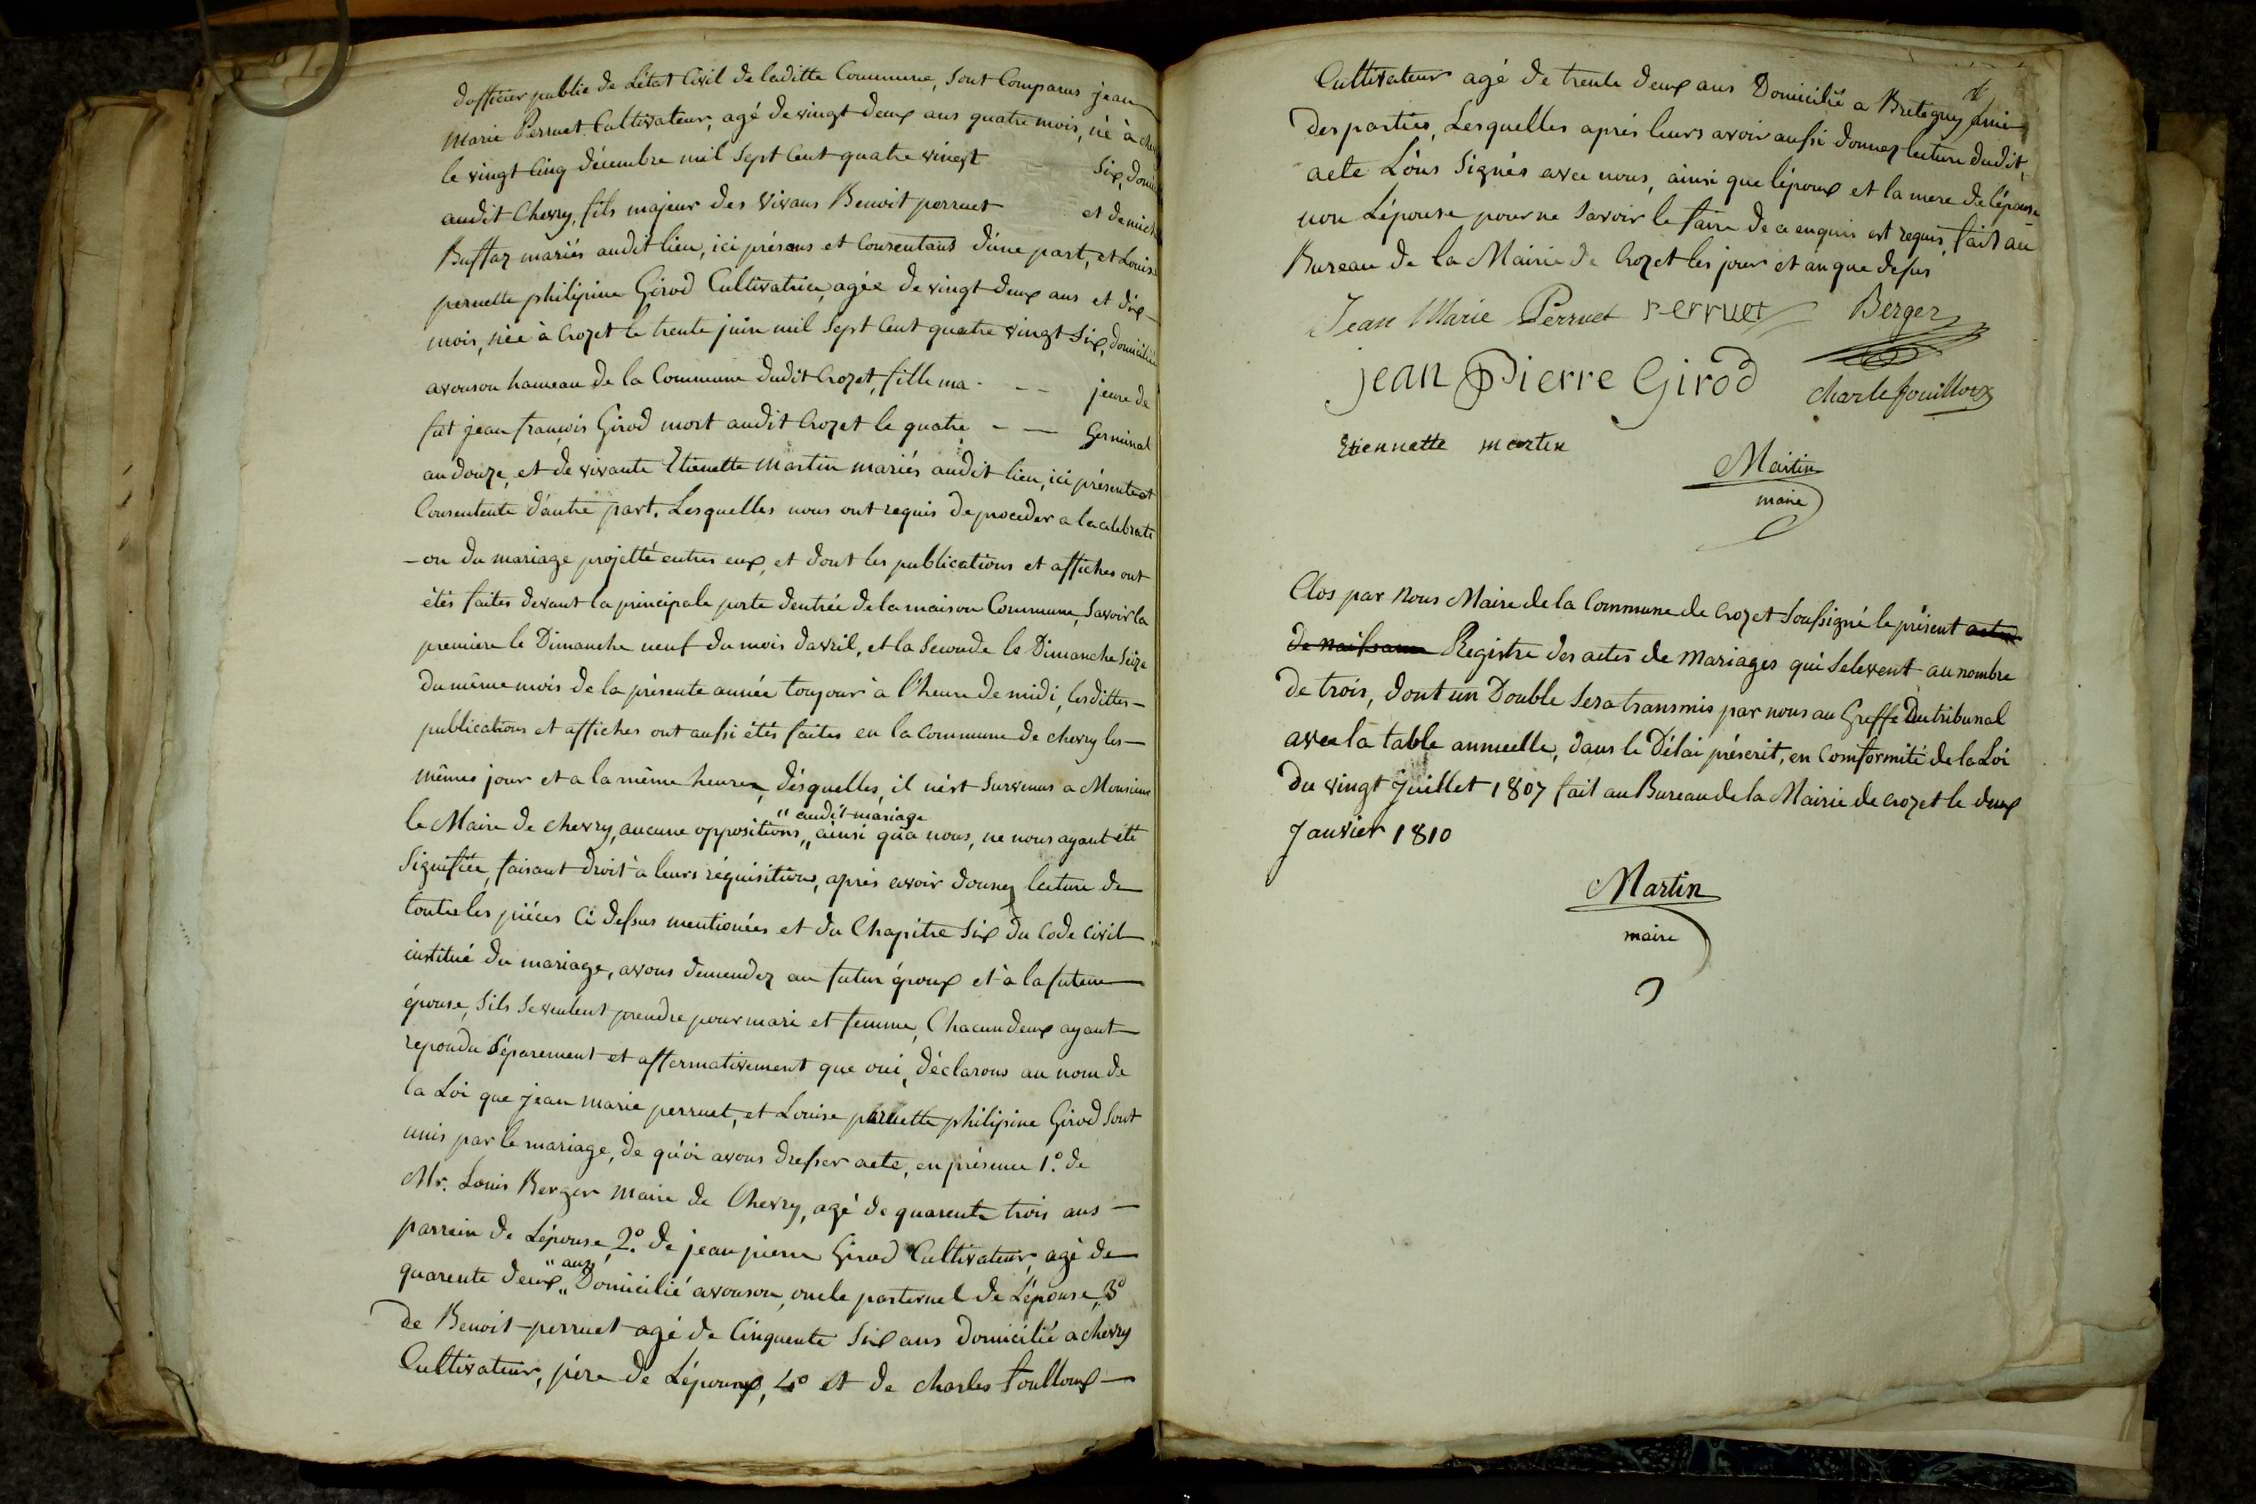 d'officier public de L'état Civil de laditte Commune, sont Comparus jean
marie Perruet Cultivateur, agé de vingt deux ans quatre mois, né à
le vingt Cinq décembre mil sept Cent quatre vingt six, domi
audit Chevry, fils majeur des vivans Benoit perruet et de
Buffaz mariés audit lieu, ici présens et Consentans d'une part, et Louise
pernette philipine Girod Cultivatrice, agée de vingt deux ans et dix
mois, née à Crozet le trente juin mil sept Cent quatre vingt six, domiciliée
avouson hameau de la Commune dudit Crozet, fille ma - - jeure de
fut jean françois Girod mort audit Crozet le quatre - - Germinal
an douze, et de vivante Etienette Martin mariés audit lieu, ici présente et
Consentente d'autre part. Lesquelles nous ont requis de proceder a la celebrati
-on du mariage projetté entres eux, et dont les publications et affiches ont
étés faites devant la principale porte dentrée de la maison Commune, Savoir la
premiere le Dimanche neuf du mois davril, et la Seconde le Dimanche Seize
du même mois de la présente année toujour à l'heure de midi, lesdittes -
publications et affiches ont aussi étés faites en la Commune de chevry les -
mêmes jour et a la même heure, désquelles, il n'est Survenus a Monsieur
le Maire de chevry, aucune oppositions, " audit mariage ainsi qu'a nous, ne nous ayant été
Signifiée, faisant droit à leurs réquisitions, aprés avoir donnez lecture de
toutes les piéces Ci dessus mentionées et du Chapitre Six du Code Civil
institué du mariage, avons demendez au futur époux et à la future
épouse, s'ils se veulent prendre pour mari et femme, Chacun deux ayant
repondu Séparement et affermativement que oui, déclarons au nom de
la Loi que jean marie perruet, et Louise pernette philipine Girod Sont
unis par le mariage, de quoi avons dresser acte, en présence 1.º de
Mr. Louis Berger Maire de Chevry, agé de quarente trois ans -
parrein de L'épouse, 2.º de jean pierre Girod Cultivateur, agé de
quarente deux " ans Domicilié avouson, oncle parternel de L'épouse, 3º
de Benoit perruet agé de Cinquente Six ans domicilié a chevry
Cultivateur, pére de L'époux, 4º et de charles fouilloux -
Cultivateur agé de trente deux ans Domicilié a Bretegny ami
des parties, Lesquelles aprés leurs avoir aussi donnez lecture dudit,
acte L'ons Signés avec nous, ainsi que l'époux et la mere de l'épouse
non L'épouse pour ne Savoir le faire de ce enquis et requis, fait au
Bureau de la Mairie de Crozet les jour et an que dessus
Jean Marie Perruet Perruet Berger
jean Pierre Girod charle fouilloux
Etiennette martin
Martin
maire
Clos par Nous Maire de la Commune de Crozet Soussigné le présent acte
de naissance Registre des actes de Mariages qui Selevent au nombre
de trois, dont un Double Sera transmis par nous au Greffe du tribunal
avec la table annuelle, dans le Délai préscrit, en Comformité de la Loi
du vingt Juillet 1807 fait au Bureau de la Mairie de Crozet le deux
Janvier 1810
Martin
maire